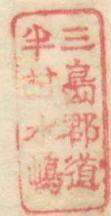 三島郡道
半村水嶋